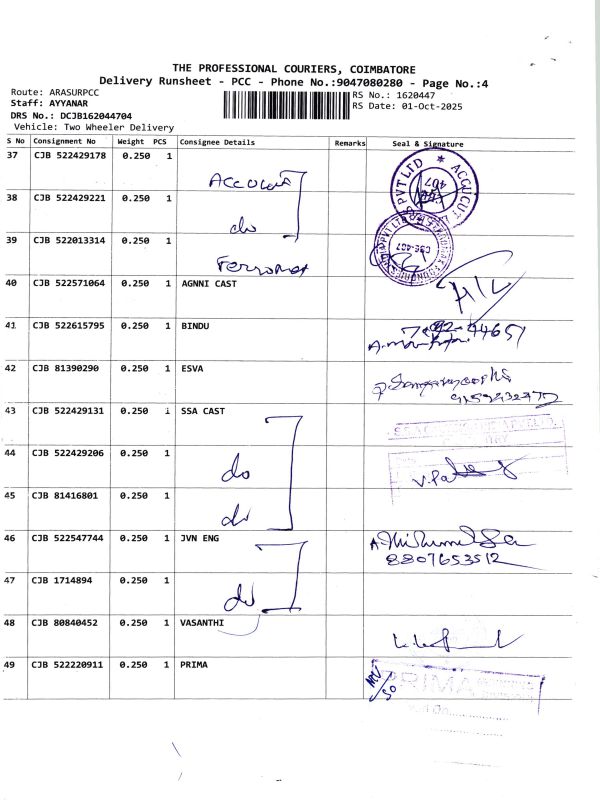 THE PROFESSIONAL COURIERS, COIMBATORE
Delivery Runsheet - PCC - Phone No.:9047080280 - Page No.:4
Route: ARASURPCC
RS No.: 1620447
Staff: AYYANAR
RS Date: 01-Oct-2025
DRS No.: DCJB162044704
Vehicle: Two Wheeler Delivery
S No Consignment No Weight PCS Consignee Details Remarks Seal & Signature
37 CJB 522429178 0.250 1
38 CJB 522429221 0.250 1 do
39 CJB 522013314 0.250 1
40 CJB 522571064 0.250 1 AGNNI CAST
41 CJB 522615795 0.250 1 BINDU
42 CJB 81390290 0.250 1 ESVA
43 CJB 522429131 0.250 i SSA CAST
44 CJB 522429206 0.250 1 do
45 CJB 81416801 0.250 1 do
46 CJB 522547744 0.250 1 JVN ENG
8807653512
47 CJB 1714894 0.250 1 do
48 CJB 80840452 0.250 1 VASANTHI
49 CJB 522220911 0.250 1 PRIMA
PRIMA